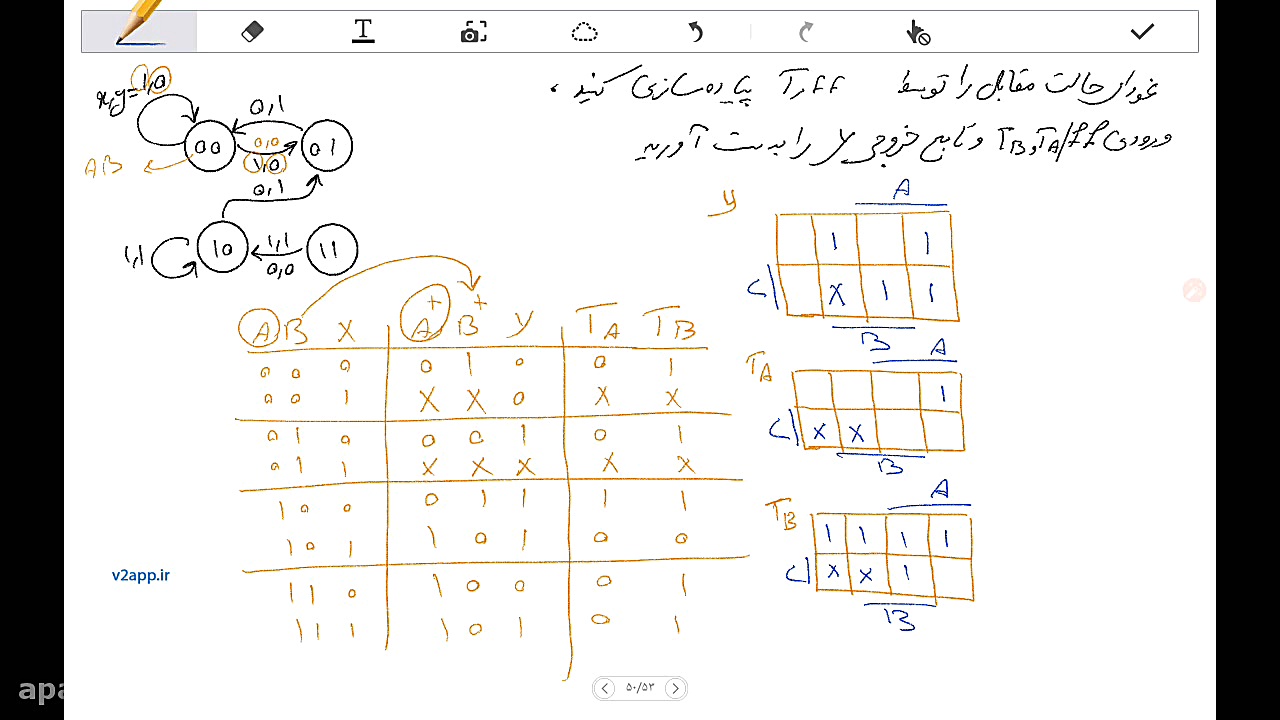 نمودار حالت مقابل را توسط TFF پیاده سازی کنید.
ورودی FF/TA و TB و تابع خروجی y را به دست آورید
x,y=1,0
0,1
00
0,0
01
1,0
AB
0,1
10
1,1
1,1
0,0
11
A B X A+ B+ Y TA TB
0 0 0 0 1 0 0 1
0 0 1 X X 0 X X
0 1 0 0 0 1 0 1
0 1 1 X X X X X
1 0 0 0 1 1 1 1
1 0 1 1 0 1 0 0
1 1 0 1 0 0 0 1
1 1 1 1 0 1 0 1
y
A
1 1
X 1 1
B
TA
A
1
X X
B
TB
A
1 1 1 1
X X 1
B
v2app.ir
apa
۵۰/۵۳
T